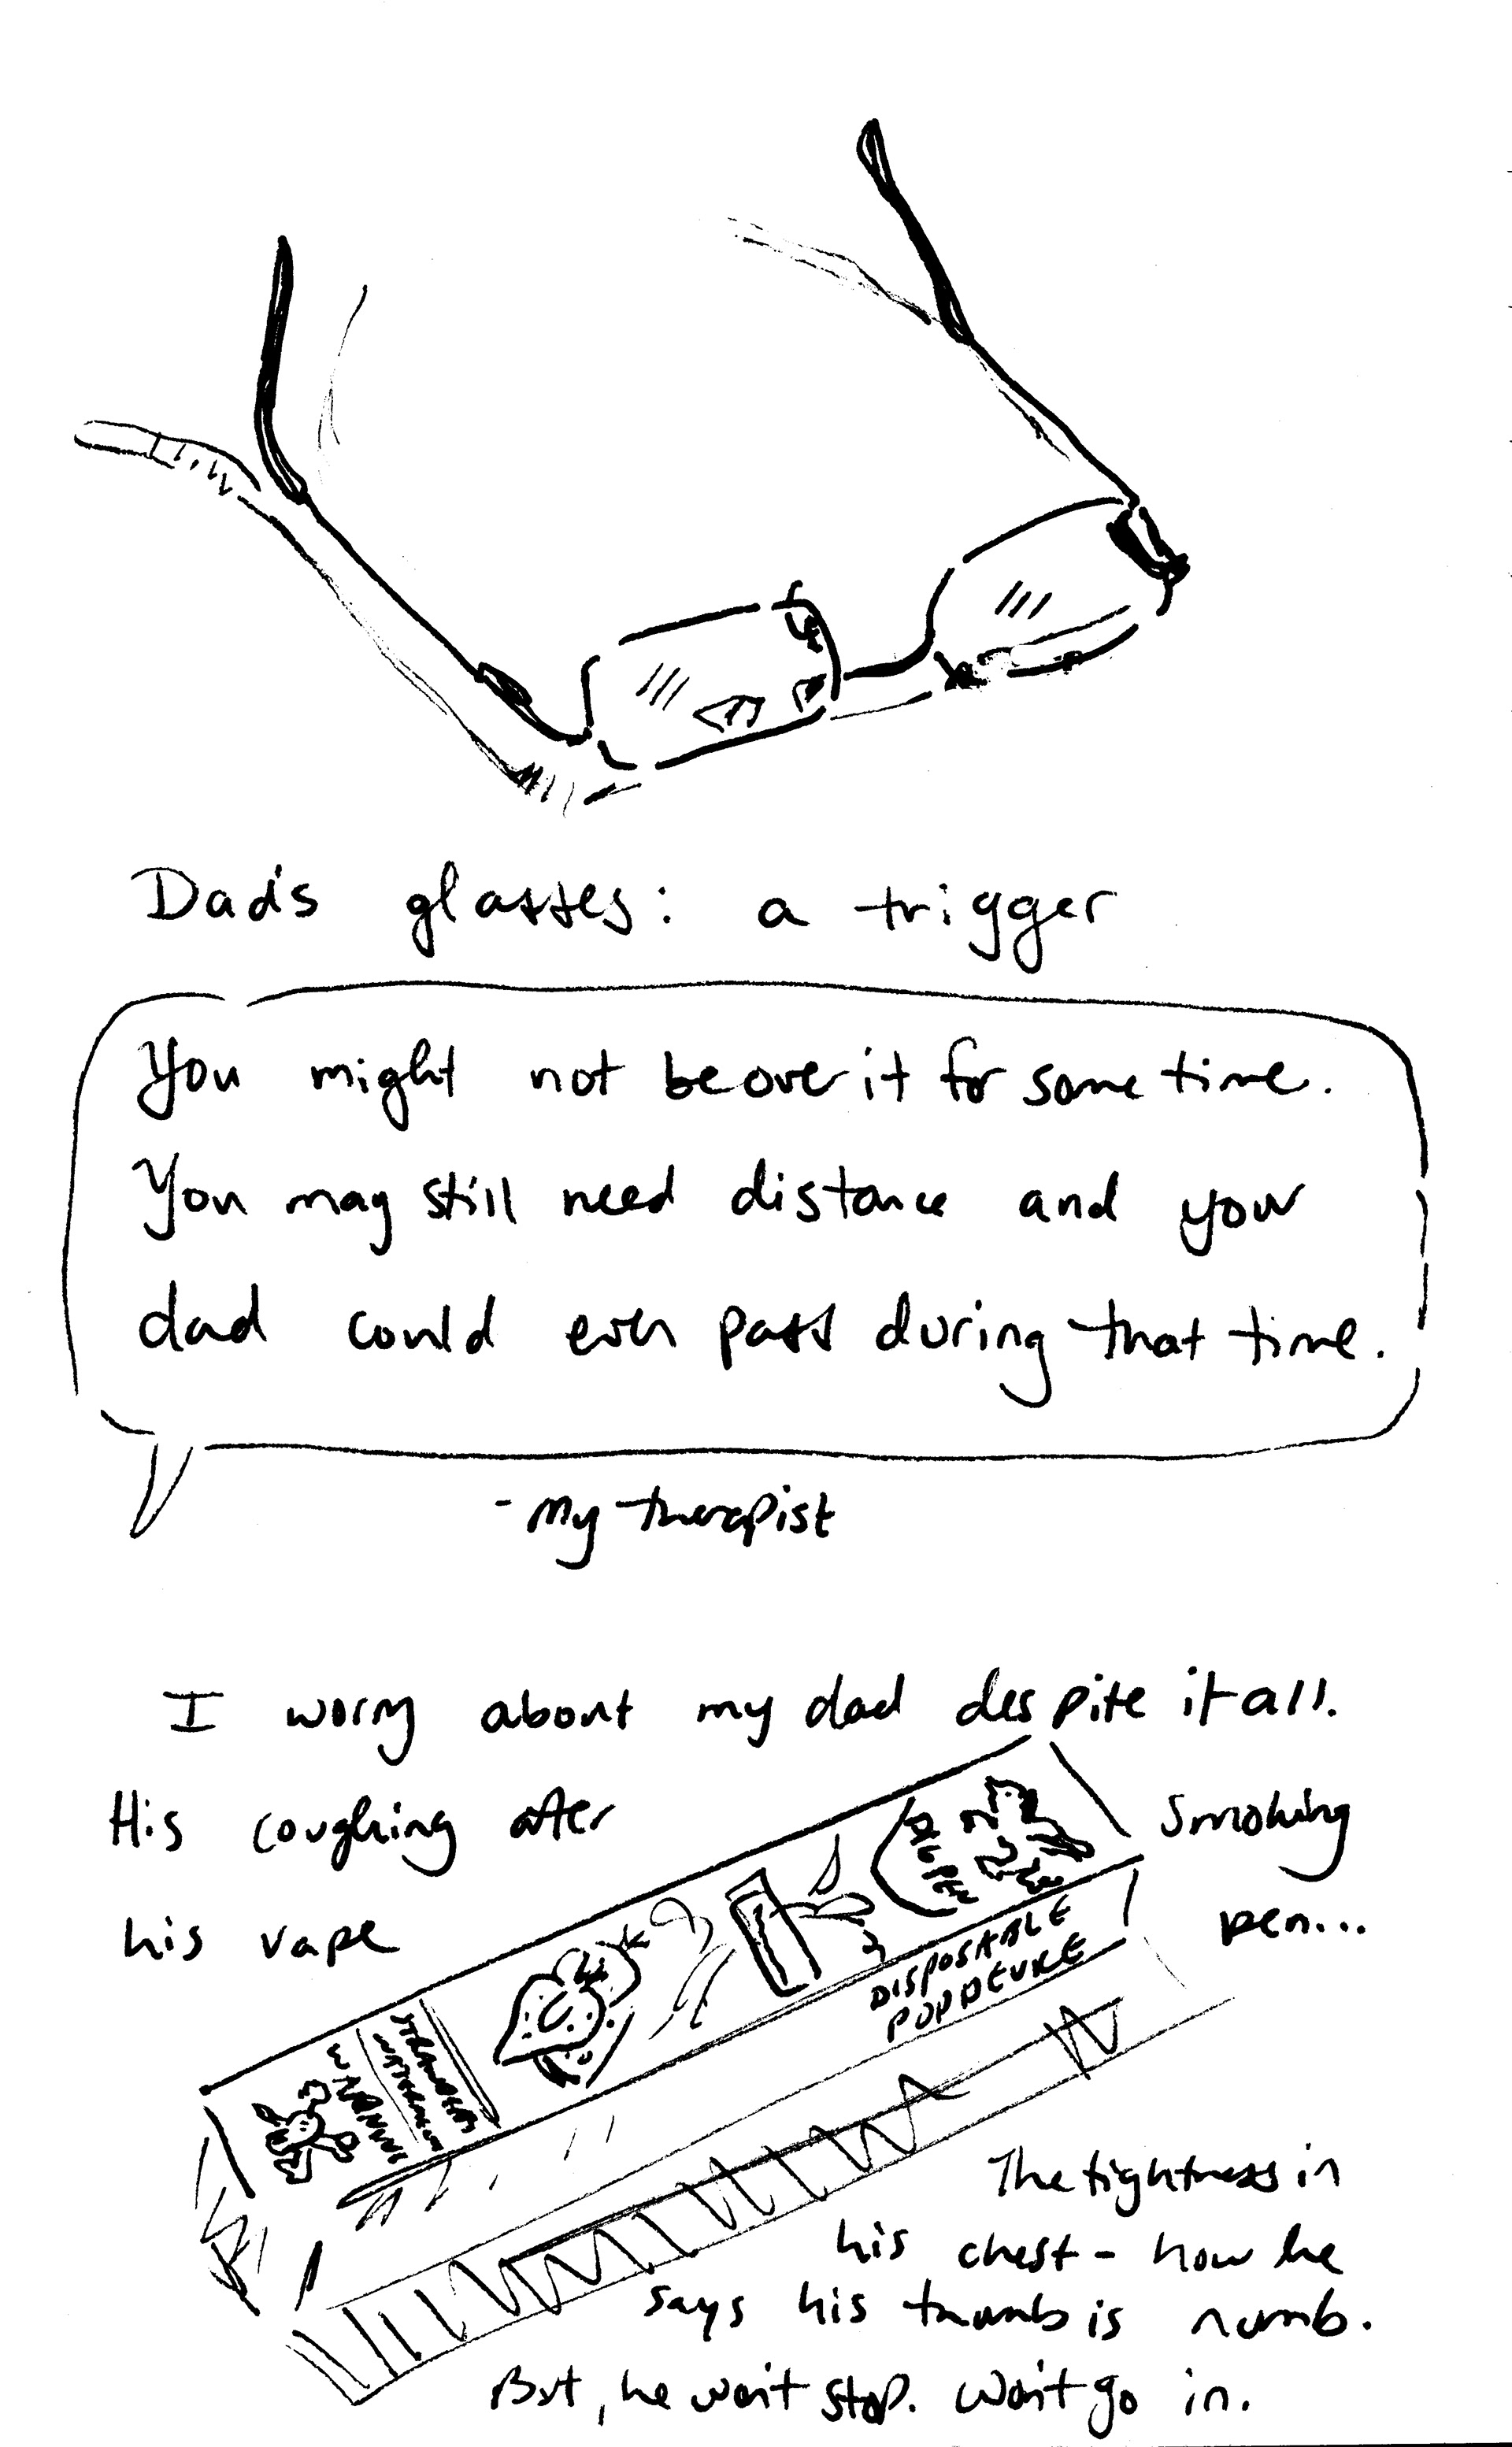 Dad's glasses: a trigger
You might not be over it for some time.
You may still need distance and your
dad could even pass during that time.
- My therapist
I worry about my dad despite it all.
His coughing after smoking
his vape pen...
DISPOSABLE
POD DEVICE
STRAWBERRY
WATERMELON
WARNING
The tightness in
his chest - how he
says his thumb is numb.
But, he won't stop. Won't go in.